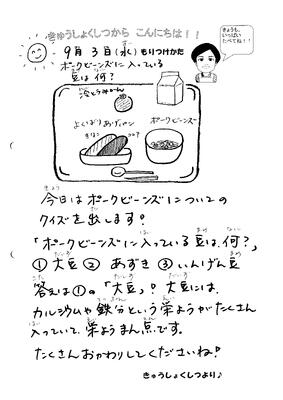 きゅうしょくしつから こんにちは！！
きょうも、
いっぱい
たべてね！！
9月 3日(水) もりつけかた
ポークビーンズに入っている
豆は何？
冷とうみかん
よくばりあげパン
きなこ
ココア
ポークビーンズ
今日はポークビーンズについての
クイズを出します！
「ポークビーンズに入っている豆は、何？」
①大豆 ② あずき ③いんげん豆
答えは①の「大豆」？大豆には、
カルシウムや鉄分という栄ようがたくさん
入っていて、栄ようまん点です。
たくさんおかわりしてくださいね！
きゅうしょくしつより♪